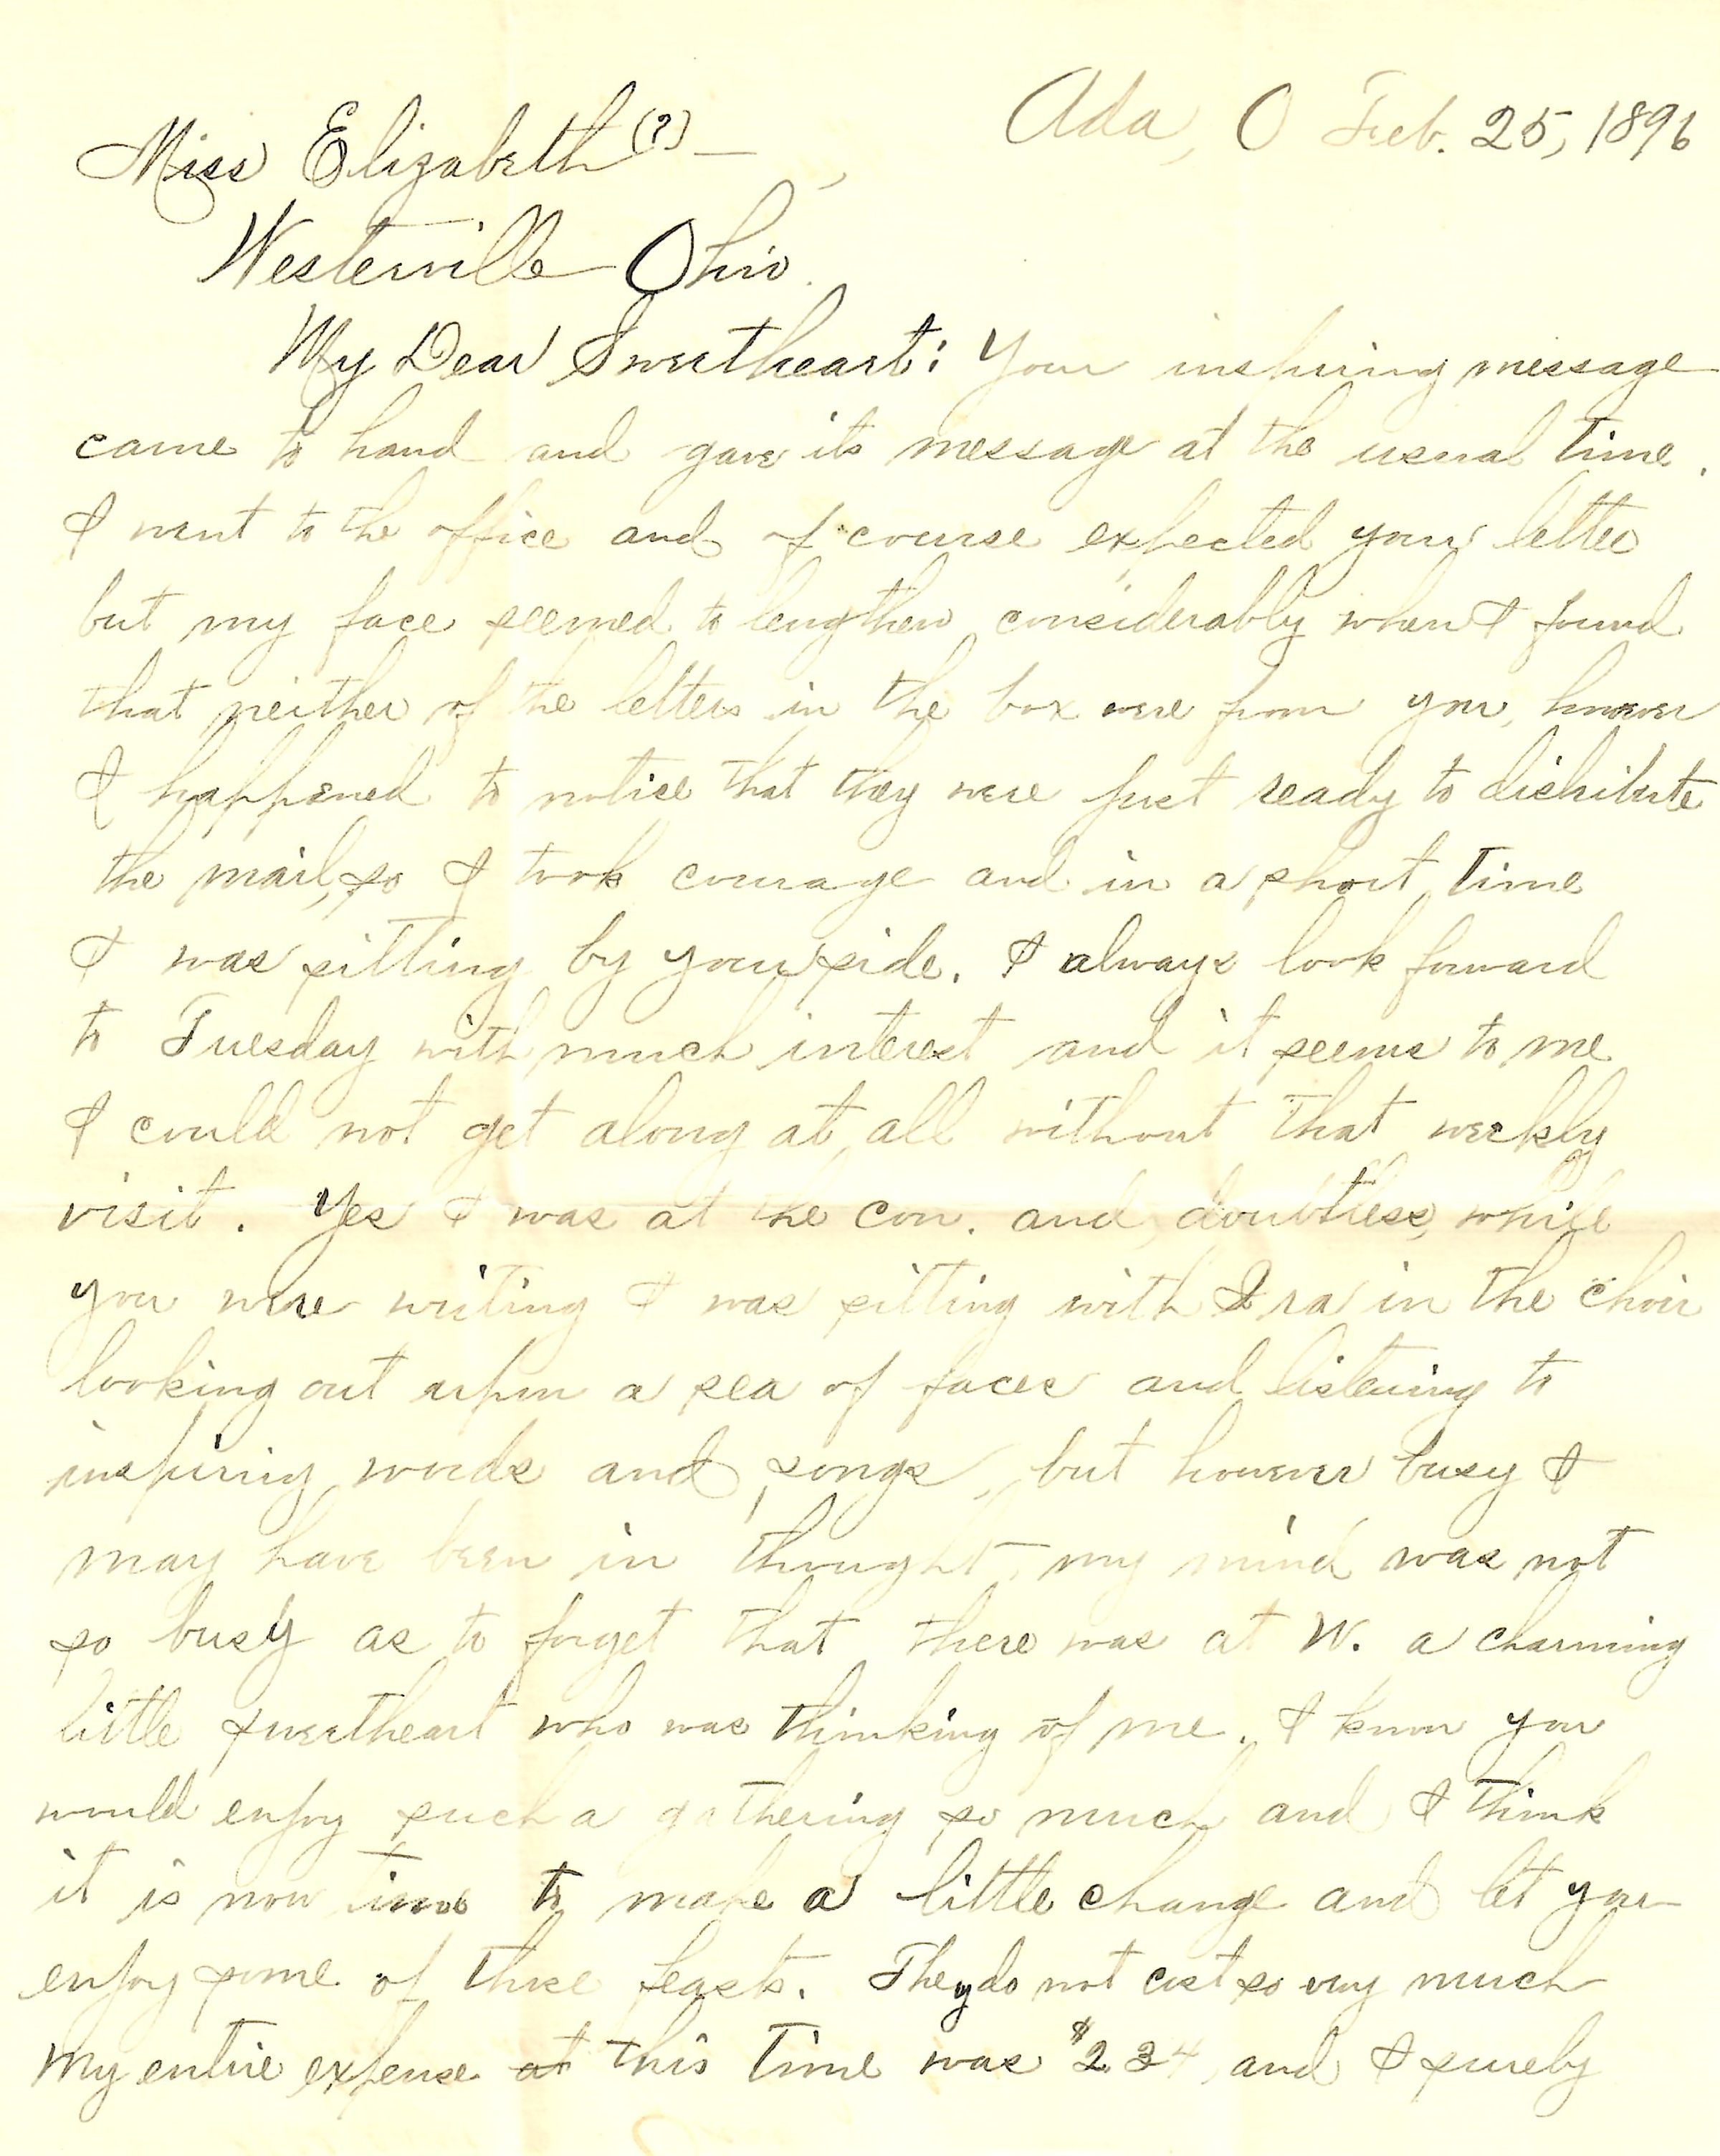 Ada, O Feb. 25, 1896
Miss Elizabeth (?) —
Westerville Ohio.
My Dear Sweetheart: Your inspiring message
came to hand and gave its message at the usual time.
I went to the office and of course expected your letter
but my face seemed to lengthen considerably when I found
that neither of the letters in the box were from you, however
I happened to notice that they were just ready to distribute
the mail, so I took courage and in a short time
I was sitting by your side. I always look forward
to Tuesday with much interest and it seems to me
I could not get along at all without that weekly
visit. Yes I was at the con. and, doubtless, while
you were writing I was sitting with Ira in the choir
looking out upon a sea of faces and listening to
inspiring words and songs, but however busy I
may have been in thought, my mind was not
so busy as to forget that there was at W. a charming
little sweetheart who was thinking of me. I know you
would enjoy such a gathering so much and I think
it is now time to make a little change and let you
enjoy some of those feasts. They do not cost so very much
My entire expense at this time was $2 34, and I surely